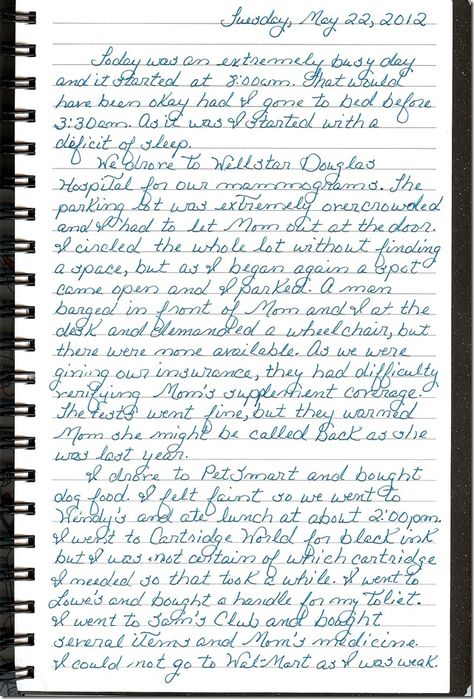 Tuesday, May 22, 2012
Today was an extremely busy day
and it started at 8:00am. That would
have been okay had I gone to bed before
3:30am. As it was I started with a
deficit of sleep.
We drove to Wellstar Douglas
Hospital for our mammograms. The
parking lot was extremely overcrowded
and I had to let Mom out at the door.
I circled the whole lot without finding
a space, but as I began again a spot
came open and I parked. A man
barged in front of Mom and I at the
desk and demanded a wheelchair, but
there were none available. As we were
giving our insurance, they had difficulty
verifying Mom's supplement coverage.
The tests went fine, but they warned
Mom she might be called back as she
was last year.
I drove to PetSmart and bought
dog food. I felt faint so we went to
Wendy's and ate lunch at about 2:00pm.
I went to Cartridge World for black ink
but I was not certain of which cartridge
I needed so that took a while. I went to
Lowe's and bought a handle for my toliet.
I went to Sam's Club and bought
several items and Mom's medicine.
I could not go to Wal-Mart as I was weak.